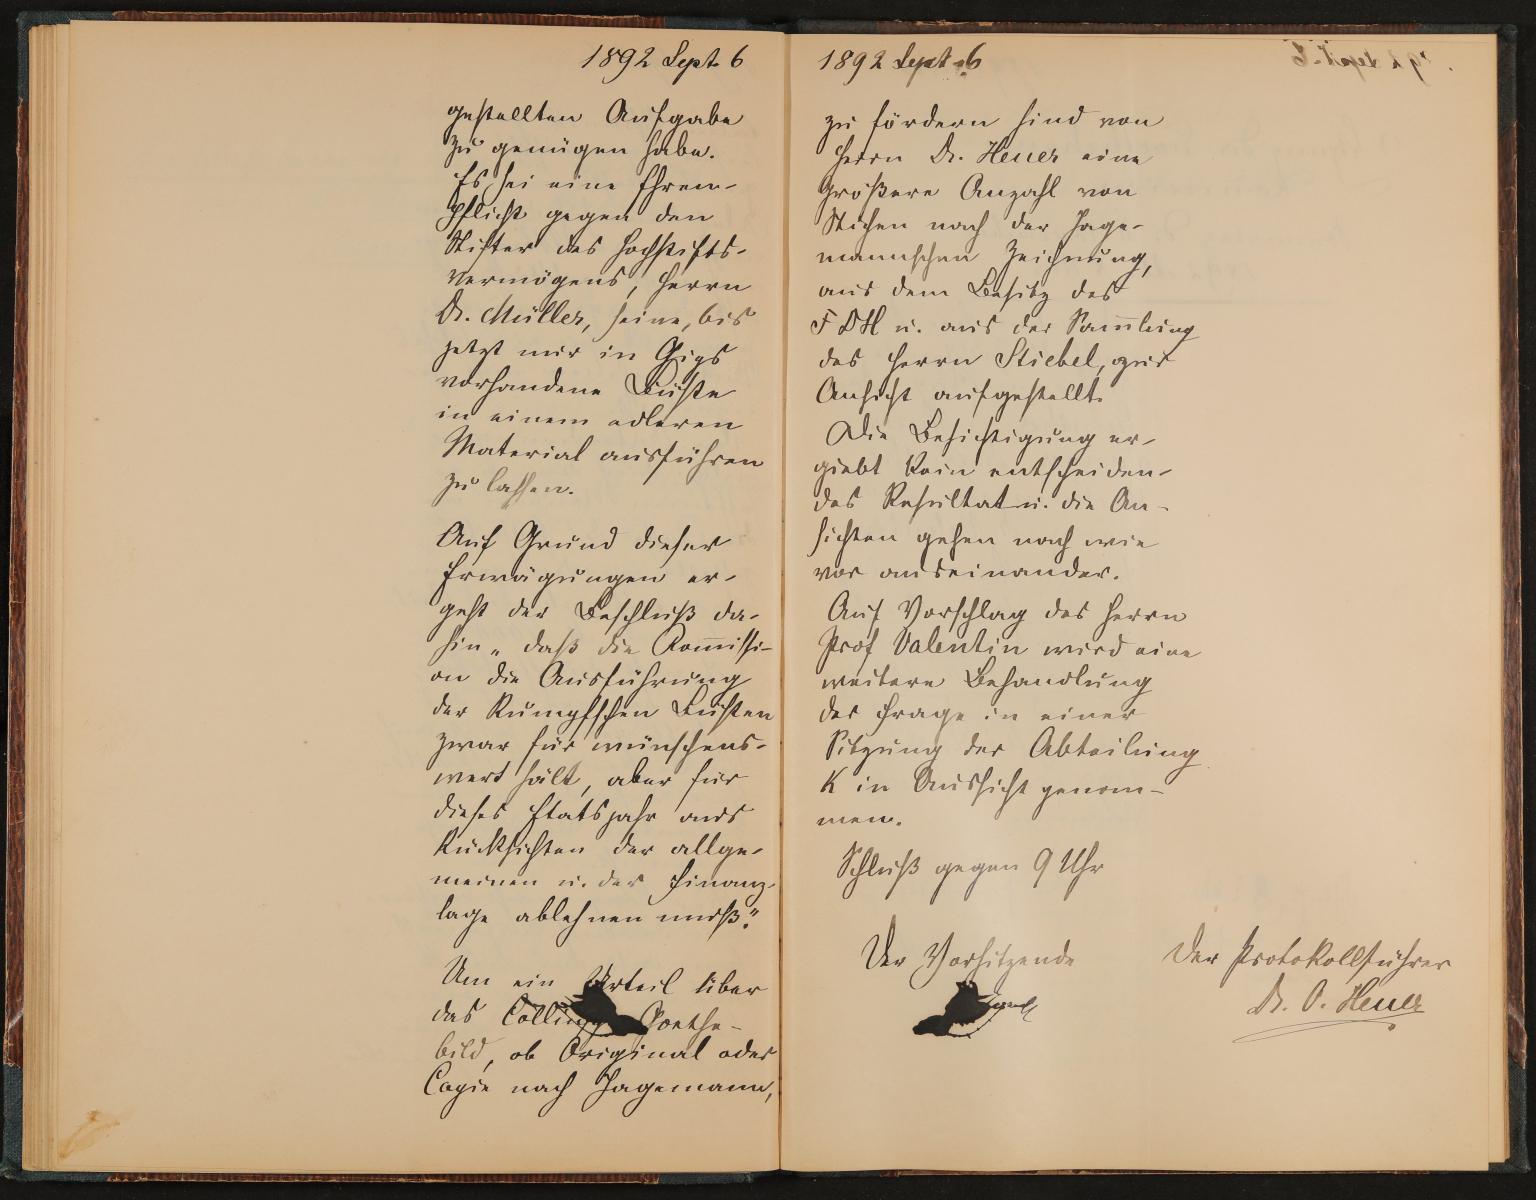 1892 Sept. 6
gestellten Aufgabe
zu genügen habe.
Es sei eine Ehren-
pflicht gegen den
Stifter des Hochstifts-
vermögens, Herrn
Dr. Müller, seine, bis
jetzt nur in Gips
vorhandene Büste
in einem edleren
Material ausführen
zu lassen.
Auf Grund dieser
Erwägungen er-
geht der Beschluß da-
hin „daß die Kom̅issi-
on die Ausführung
der Rumpfschen Büsten
zwar für wünschens-
wert hält, aber für
dieses Etatsjahr aus
Rücksichten der allge-
meinen u. der Finanz-
lage ablehnen muß."
Um ein Urteil über
das Collins Goethe-
bild, ob Original oder
Copie nach Jagemann,
1892 Sept. 6
zu fördern sind von
Herrn Dr. Heuer eine
größere Anzahl von
Stichen nach der Jage-
mannschen Zeichnung,
aus dem Besitz des
FDH u. aus der Sam̅lung
des Herrn Stiebel, zur
Ansicht aufgestellt.
Die Besichtigung er-
giebt kein entscheiden-
des Resultat u. die An-
sichten gehen nach wie
vor auseinander.
Auf Vorschlag des Herrn
Prof Valentin wird eine
weitere Behandlung
der Frage in einer
Sitzung der Abteilung
K in Aussicht genom-
men.
Schluß gegen 9 Uhr
Der Vorsitzende
Der Protokollführer
Dr. O. Heuer